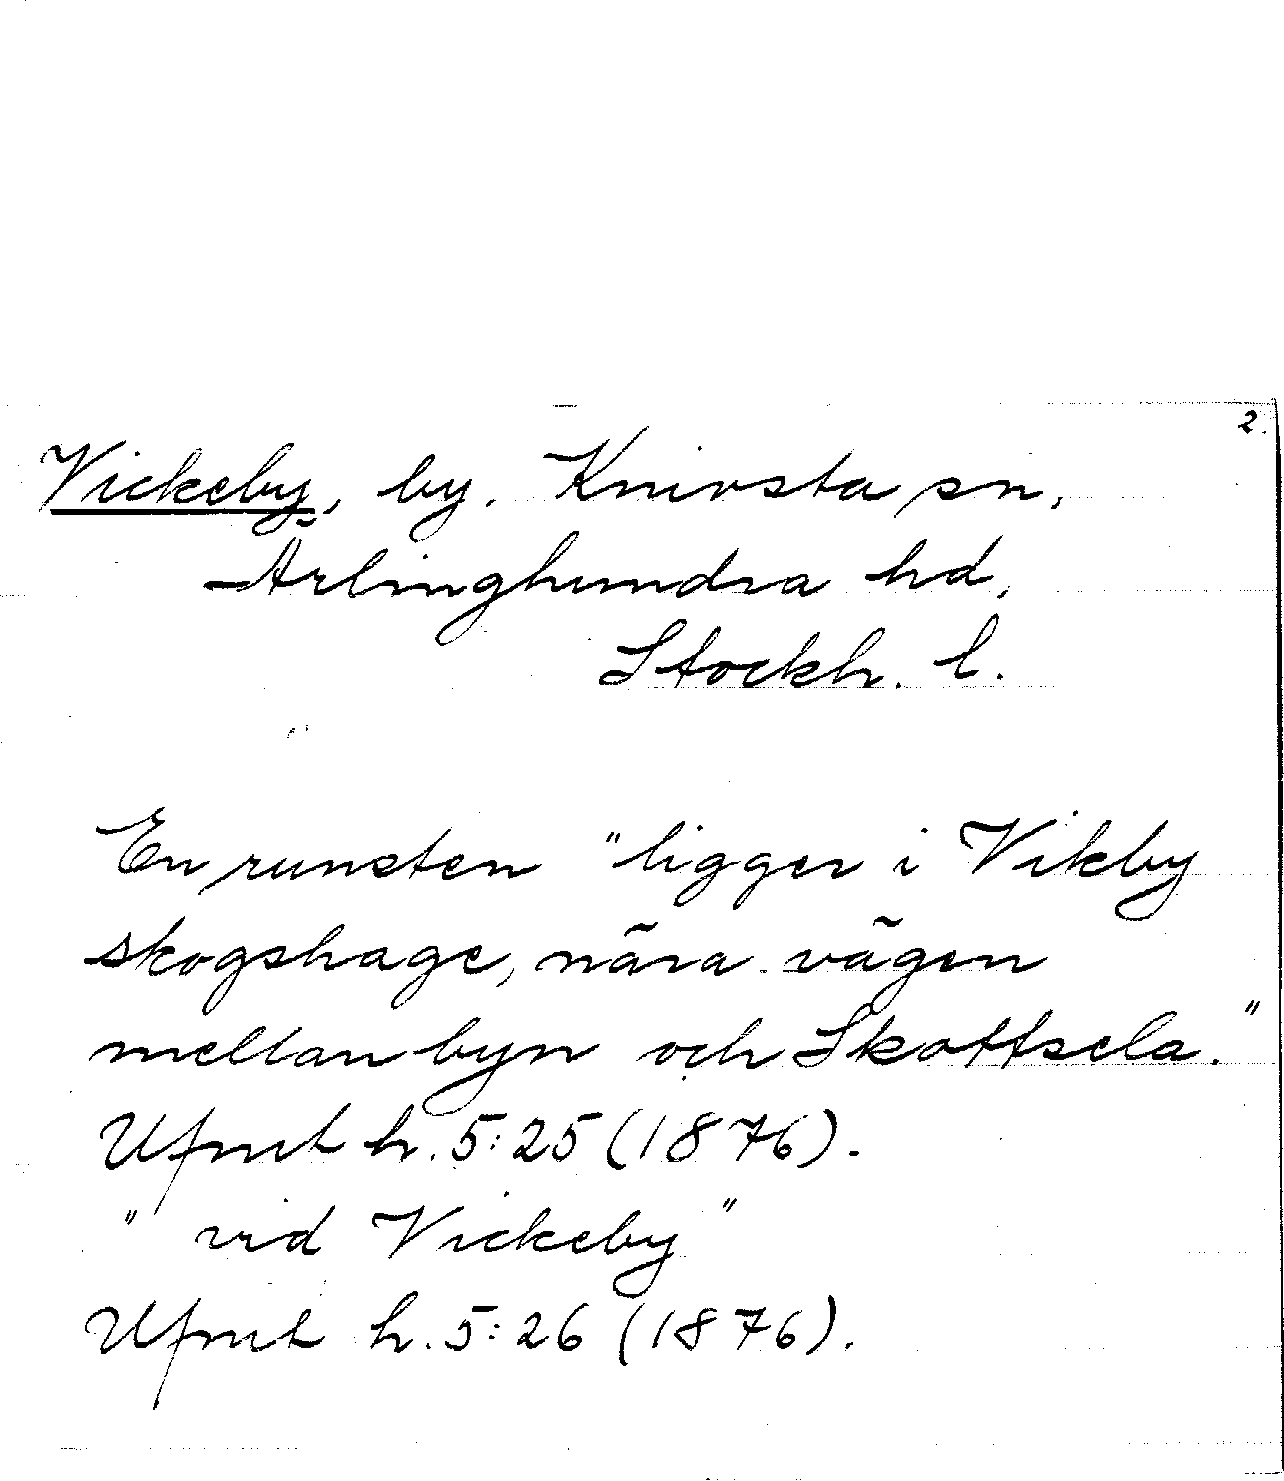 2.
Vickeby, by. Knivsta sn,
Ärlinghundra hd,
Stockh. l.
En runsten "ligger i Vikby
skogshage, nära vägen
mellan byn och Skottsela."
Ufmt h. 5:25 (1876).
" vid Vickeby "
Ufmt h. 5:26 (1876).